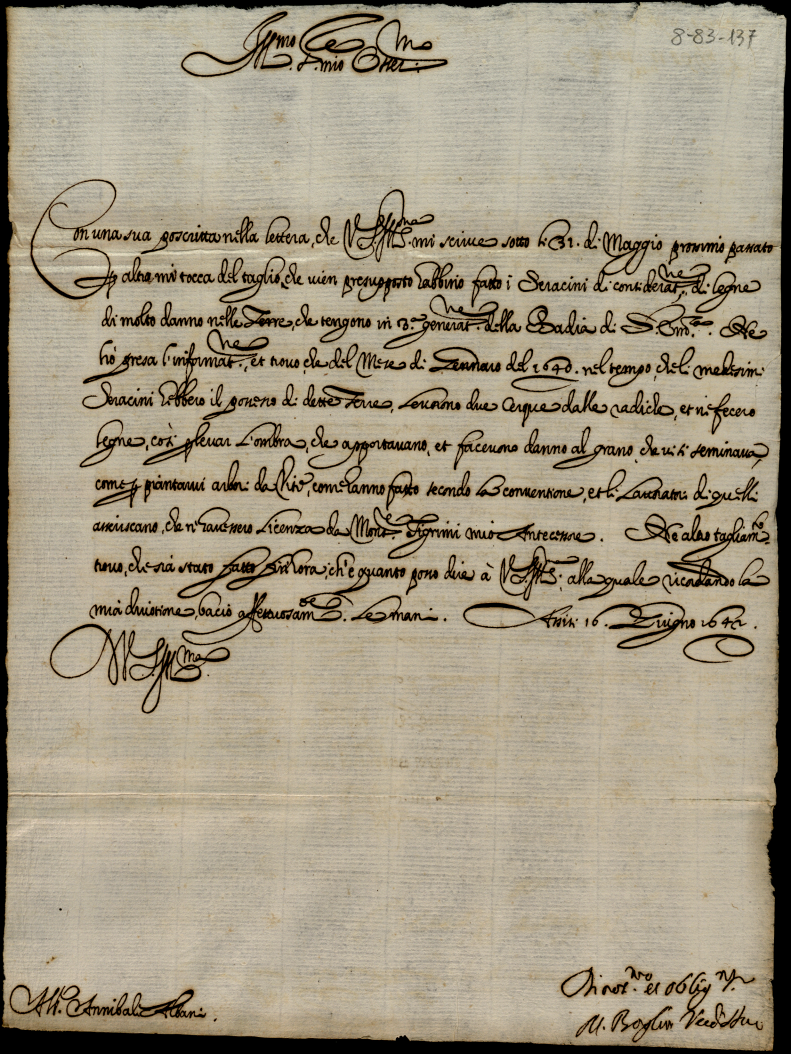 8-83-137
Con una sua poscritta nella lettera, che V.S. Ill.ma mi scrive sotto li 31. di Maggio prossimo passato
altro mi tocca del taglio, che vien presupposto habbino fatto i Seracini di considerat.ne di legne
di molto danno nelle Terre, che tengono in 3.a generat.ne della Badia di Ne
hò presa l'informat.ne, et trovo, che del Mese di Gennaro del 1640. nel tempo, che li medesimi
Seracini hebbero il possesso di dette Terre, levorono due Cerque dalle radiche, et ne fecero
legne, così p levar l'ombra, che apportavano, et facevono danno al grano, che vi si seminava,
come p piantarvi arbori da come hanno fatto secondo la conventione, et li Lavoratori di quelli
che n'havessero licenza da Mons.r Tigrimi mio Antecessore. Ne altro tagliam.to
trovo, che sia stato fatto fin'hora, ch'è quanto posso dire à V.S. Ill.ma alla quale ricordando la
mia divotione, bacio affettuosam.te le mani. Assisi 16. Giugno 1641.
V.S. Ill.ma
Annibale Albani.
Divot.mo et oblig.mo